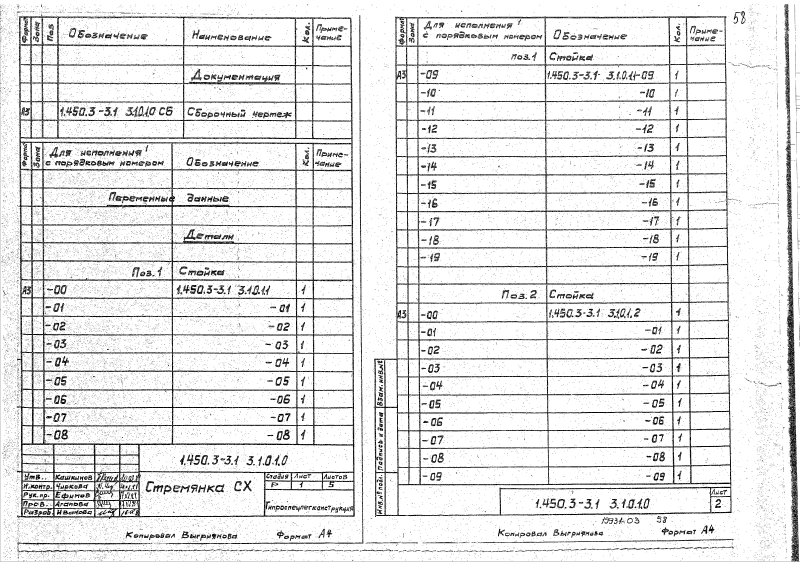 58
Форма Зона Поз. Обозначение Наименование Кол. Приме-
чание
Документация
А3 1.450.3-3.1 3.1.0.1.0 СБ Сборочный чертеж
Форма Зона Для исполнения с порядковым номером Обозначение Кол. Приме-
чание
Переменные данные
Детали
Поз. 1 Стойка
А3 -00 1.450.3-3.1 3.1.0.1.1 1
-01 -01 1
-02 -02 1
-03 -03 1
-04 -04 1
-05 -05 1
-06 -06 1
-07 -07 1
-08 -08 1
1.450.3-3.1 3.1.0.1.0
Утв. Кашкинов
Н.контр. Чиркова
Рук.пр. Ефимов
Пров. Агапова
Разраб. Иванова
Стремянка СХ
Стадия Лист Листов
Р 1 5
Гипроспецлегконструкция
Копировал Выгриянова Формат А4
Форма Зона Для исполнения с порядковым номером Обозначение Кол. Приме-
чание
поз.1 Стойка
А3 -09 1.450.3-3.1 3.1.0.1.1-09 1
-10 -10 1
-11 -11 1
-12 -12 1
-13 -13 1
-14 -14 1
-15 -15 1
-16 -16 1
-17 -17 1
-18 -18 1
-19 -19 1
Поз.2 Стойка
А3 -00 1.450.3-3.1 3.1.0.1.2 1
-01 -01 1
-02 -02 1
-03 -03 1
-04 -04 1
-05 -05 1
-06 -06 1
-07 -07 1
-08 -08 1
-09 -09 1
Взам. инв.№
Подпись и дата
Инв.№подл.
1.450.3-3.1 3.1.0.1.0
Лист
2
19931-03 58
Копировал Выгриянова Формат А4